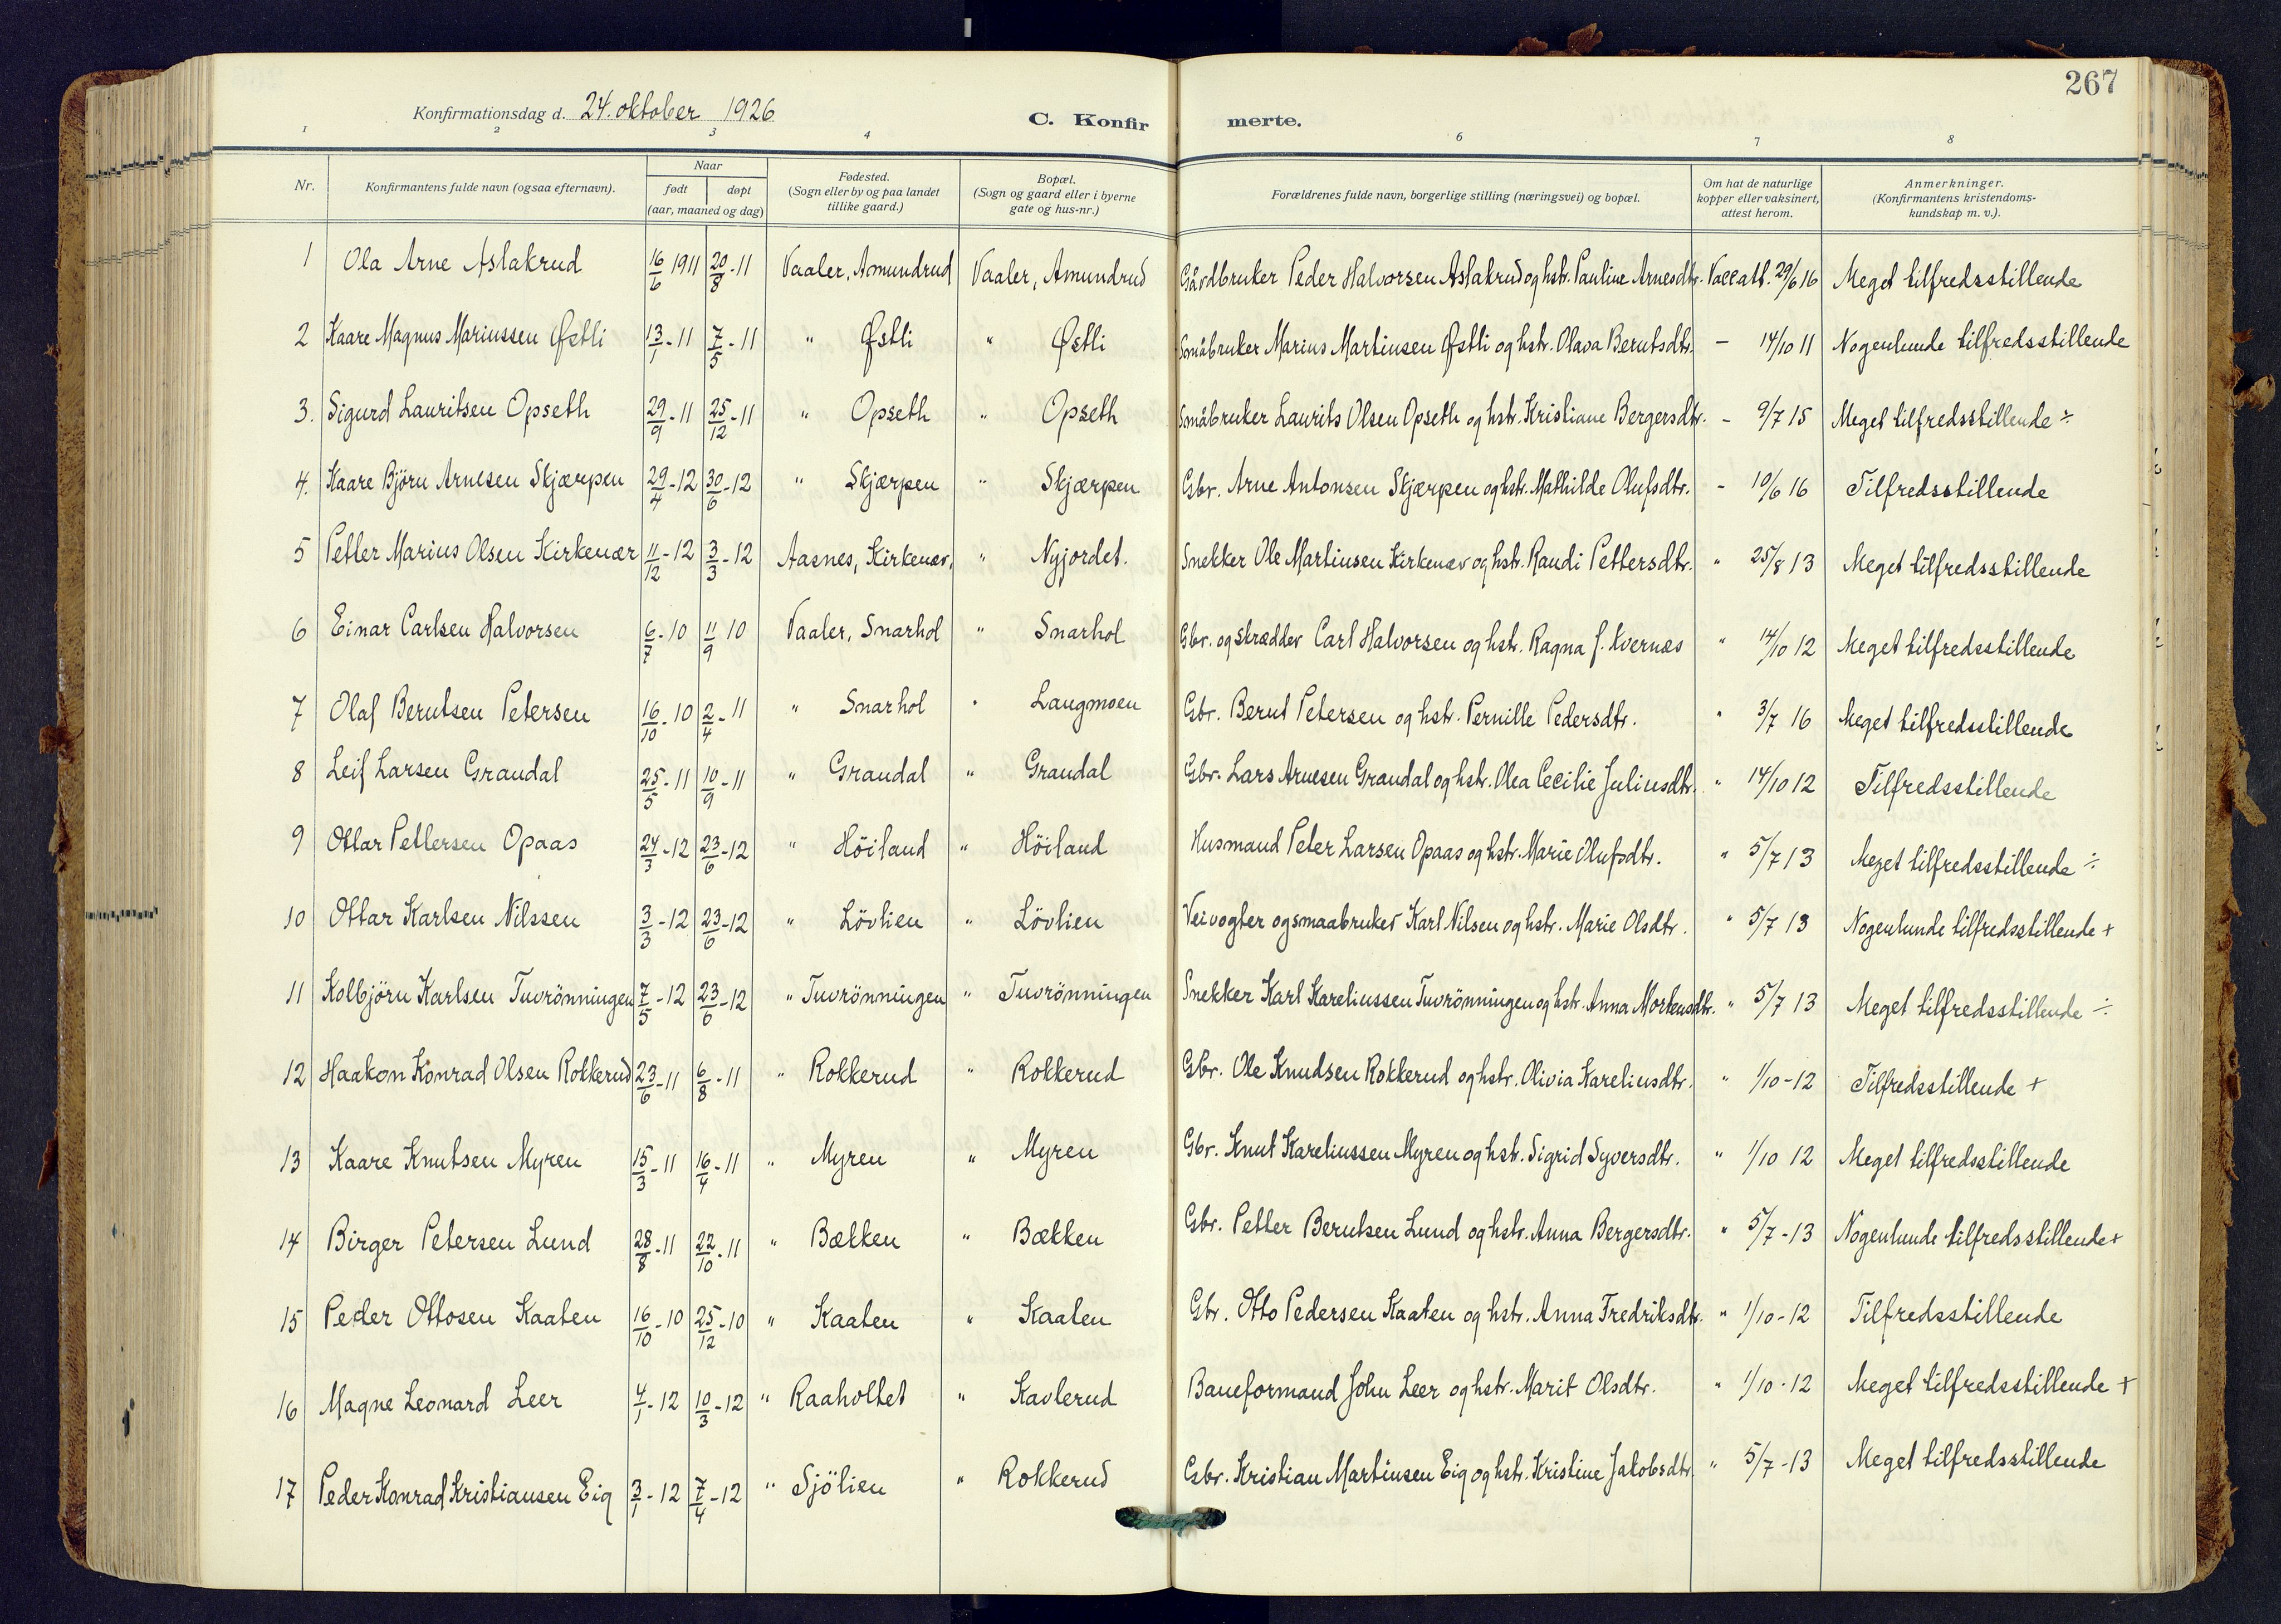 267
Konfirmationsdag d. 24. oktober 1926
C. Konfirmerte.
1 2 3 4 6 7 8
Nr. Konfirmantens fulde navn (ogsaa efternavn). Naar født døpt (aar, maaned og dag) Fødested. (Sogn eller by og paa landet tillike gaard.) Bopæl. (Sogn og gaard eller i byerne gate og hus-nr.) Forældrenes fulde navn, borgerlige stilling (næringsvei) og bopæl. Om hat de naturlige kopper eller vaksinert, attest herom. Anmerkninger. (Konfirmantens kristendomskundskap m. v.).
1 Ola Arne Aslakrud 16/6 1911 20/8-11 Vaaler, Amundrud Vaaler, Amundrud Gårdbruker Peder Halvorsen Aslakrud og hstr. Pauline Arnesdtr. Vacc att. 29/6 16 Meget tilfredsstillende
2 Kaare Magnus Mariussen Østli 13/1-11 7/5-11 " Østli " Østli Småbruker Marius Martinsen Østli og hstr. Olava Berntsdtr. - 14/10 11 Nogenlunde tilfredsstillende
3. Sigurd Lauritsen Opseth 29/9-11 25/12-11 " Opseth " Opseth Småbruker Laurits Olsen Opseth og hstr. Kristiane Bergersdtr. - 9/7 15 Meget tilfredsstillende ÷
4. Kaare Björn Arnesen Skjærpen 29/4-12 30/6-12 " Skjærpen " Skjærpen Gbr. Arne Antonsen Skjærpen og hstr. Mathilde Olufsdtr. - 10/6 16 Tilfredsstillende
5 Petter Marius Olsen Kirkenær 11/12-12 3/3-12 Aasnes, Kirkenær, " Nyjordet. Snekker Ole Martinsen Kirkenær og hstr. Randi Pettersdtr. " 25/8 13 Meget tilfredsstillende
6 Einar Carlsen Halvorsen 6/7-10 11/9 10 Vaaler, Snarhol " Snarhol Gbr. og skrædder Carl Halvorsen og hstr. Ragna f. Kvernæs " 14/10 12 Meget tilfredsstillende
7 Olaf Berntsen Petersen 16/10-10 2/4-11 " Snarhol " Langmoen Gbr. Bernt Petersen og hstr. Pernille Pedersdtr. " 3/7 16 Meget tilfredsstillende
8 Leif Larsen Grandal 25/5-11 10/9-11 " Grandal " Grandal Gbr. Lars Arnesen Grandal og hstr. Olea Cecilie Juliusdtr. " 14/10 12 Tilfredsstillende
9 Ottar Pettersen Opaas 24/3-12 23/6-12 " Höiland " Höiland Husmand Peter Larsen Opaas og hstr. Marie Olufsdtr. " 5/7 13 Meget tilfredsstillende ÷
10 Ottar Karlsen Nilssen 3/3-12 23/6-12 " Lövlien " Lövlien Veivogter og smaabruker Karl Nilsen og hstr. Marie Olsdtr. " 5/7 13 Nogenlunde tilfredsstillende +
11 Kolbjörn Karlsen Tuvrönningen 7/5-12 23/6-12 " Tuvrönningen " Tuvrönningen Snekker Karl Kareliussen Tuvrönningen og hstr. Anna Mortensdtr. " 5/7 13 Meget tilfredsstillende ÷
12 Haakon Konrad Olsen Rokkerud 23/6-11 6/8-11 " Rokkerud " Rokkerud Gbr. Ole Knudsen Rokkerud og hstr. Olivia Kareliusdtr. " 1/10-12 Tilfredsstillende +
13 Kaare Knutsen Myren 15/3-11 16/4-11 " Myren " Myren Gbr. Knut Kareliussen Myren og hstr. Sigrid Syversdtr. " 1/10 12 Meget tilfredsstillende
14 Birger Petersen Lund 28/8-11 22/10-11 " Bækken " Bækken Gbr. Petter Berntsen Lund og hstr. Anna Bergersdtr. " 5/7-13 Nogenlunde tilfredsstillende +
15 Peder Ottosen Kaaten 16/10-10 25/12-10 " Kaaten " Kaaten Gbr. Otto Pedersen Kaaten og hstr. Anna Fredriksdtr. " 1/10-12 Tilfredsstillende
16 Magne Leonard Leer 4/1-12 10/3-12 " Raaholtet " Kavlerud Baneformand John Leer og hstr. Marit Olsdtr. " 1/10-12 Meget tilfredsstillende +
17 Peder Konrad Kristiansen Eig 3/1-12 7/4-12 " Sjölien " Rokkerud Gbr. Kristian Martinsen Eig og hstr. Kristine Jakobsdtr. " 5/7-13 Meget tilfredsstillende